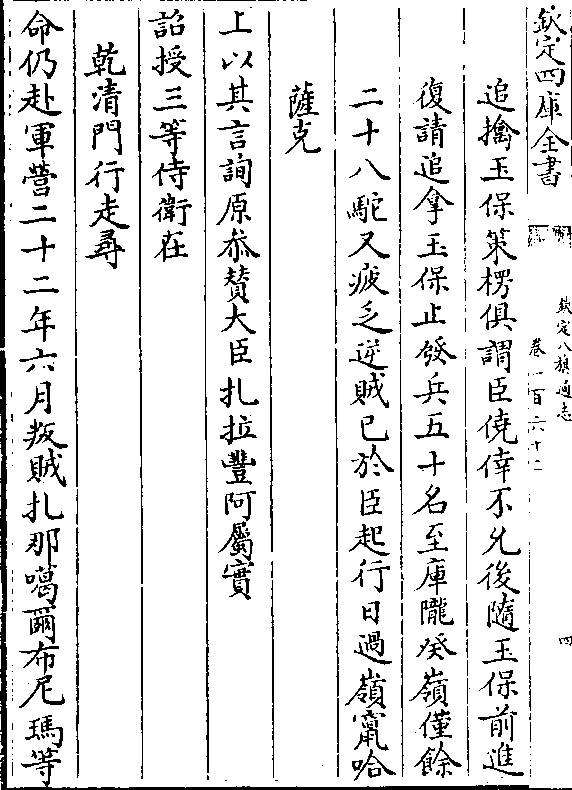 欽定四庫全書
欽定八旗通志
卷一百六十二
四
追擒玉保策楞俱謂臣僥倖不允後隨玉保前進
復請追拿玉保止發兵五十名至庫隴癸嶺僅餘
二十八駝又疲乏逆賊已於臣起行日過嶺竄哈
薩克
上以其言詢原叅贊大臣扎拉豐阿屬實
詔授三等侍衛在
乾清門行走尋
命仍赴軍營二十二年六月叛賊扎那噶爾布尼瑪等